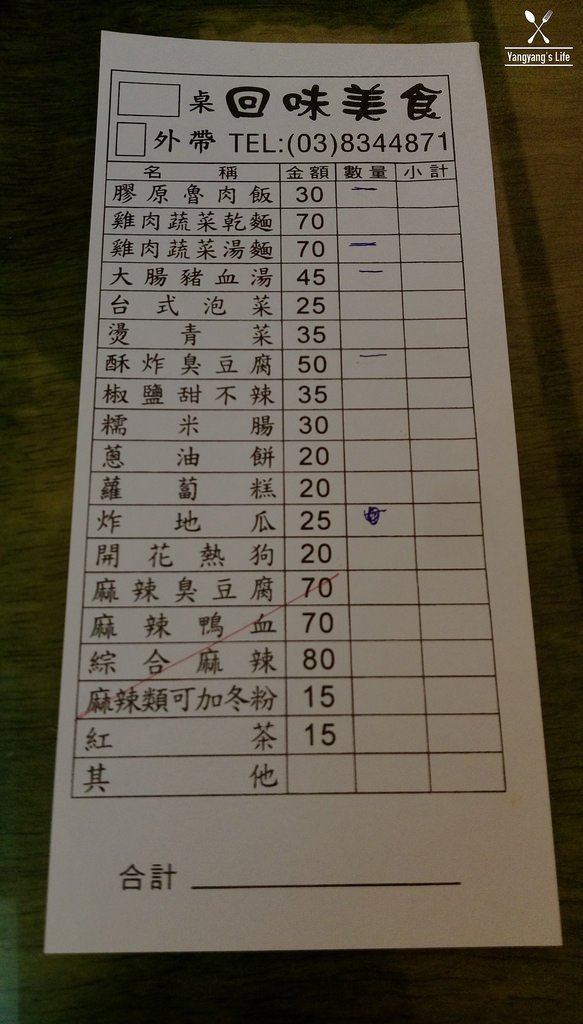 Yangyang's Life
桌 回味美食
外帶 TEL:(03)8344871
名稱 金額 數量 小計
膠原魯肉飯 30 一
雞肉蔬菜乾麵 70
雞肉蔬菜湯麵 70 一
大腸豬血湯 45 一
台式泡菜 25
燙青菜 35
酥炸臭豆腐 50 一
椒鹽甜不辣 35
糯米腸 30
蔥油餅 20
蘿蔔糕 20
炸地瓜 25
開花熱狗 20
麻辣臭豆腐 70
麻辣鴨血 70
綜合麻辣 80
麻辣類可加冬粉 15
紅茶 15
其他
合計